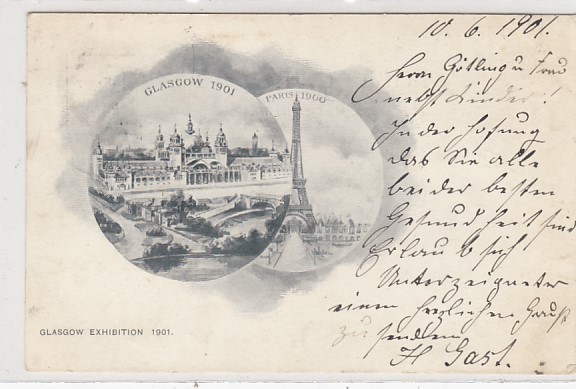 10. 6. 1901.
GLASGOW 1901
PARIS 1900
Herrn Götling u Frau
nebst Kinder!
In der Hofung
das Sie alle
bei der besten
Gesundheit sind
Erlaub sich
Unterzeigneter
einen herzlichen Gruß
zu senden
H Gast.
GLASGOW EXHIBITION 1901.